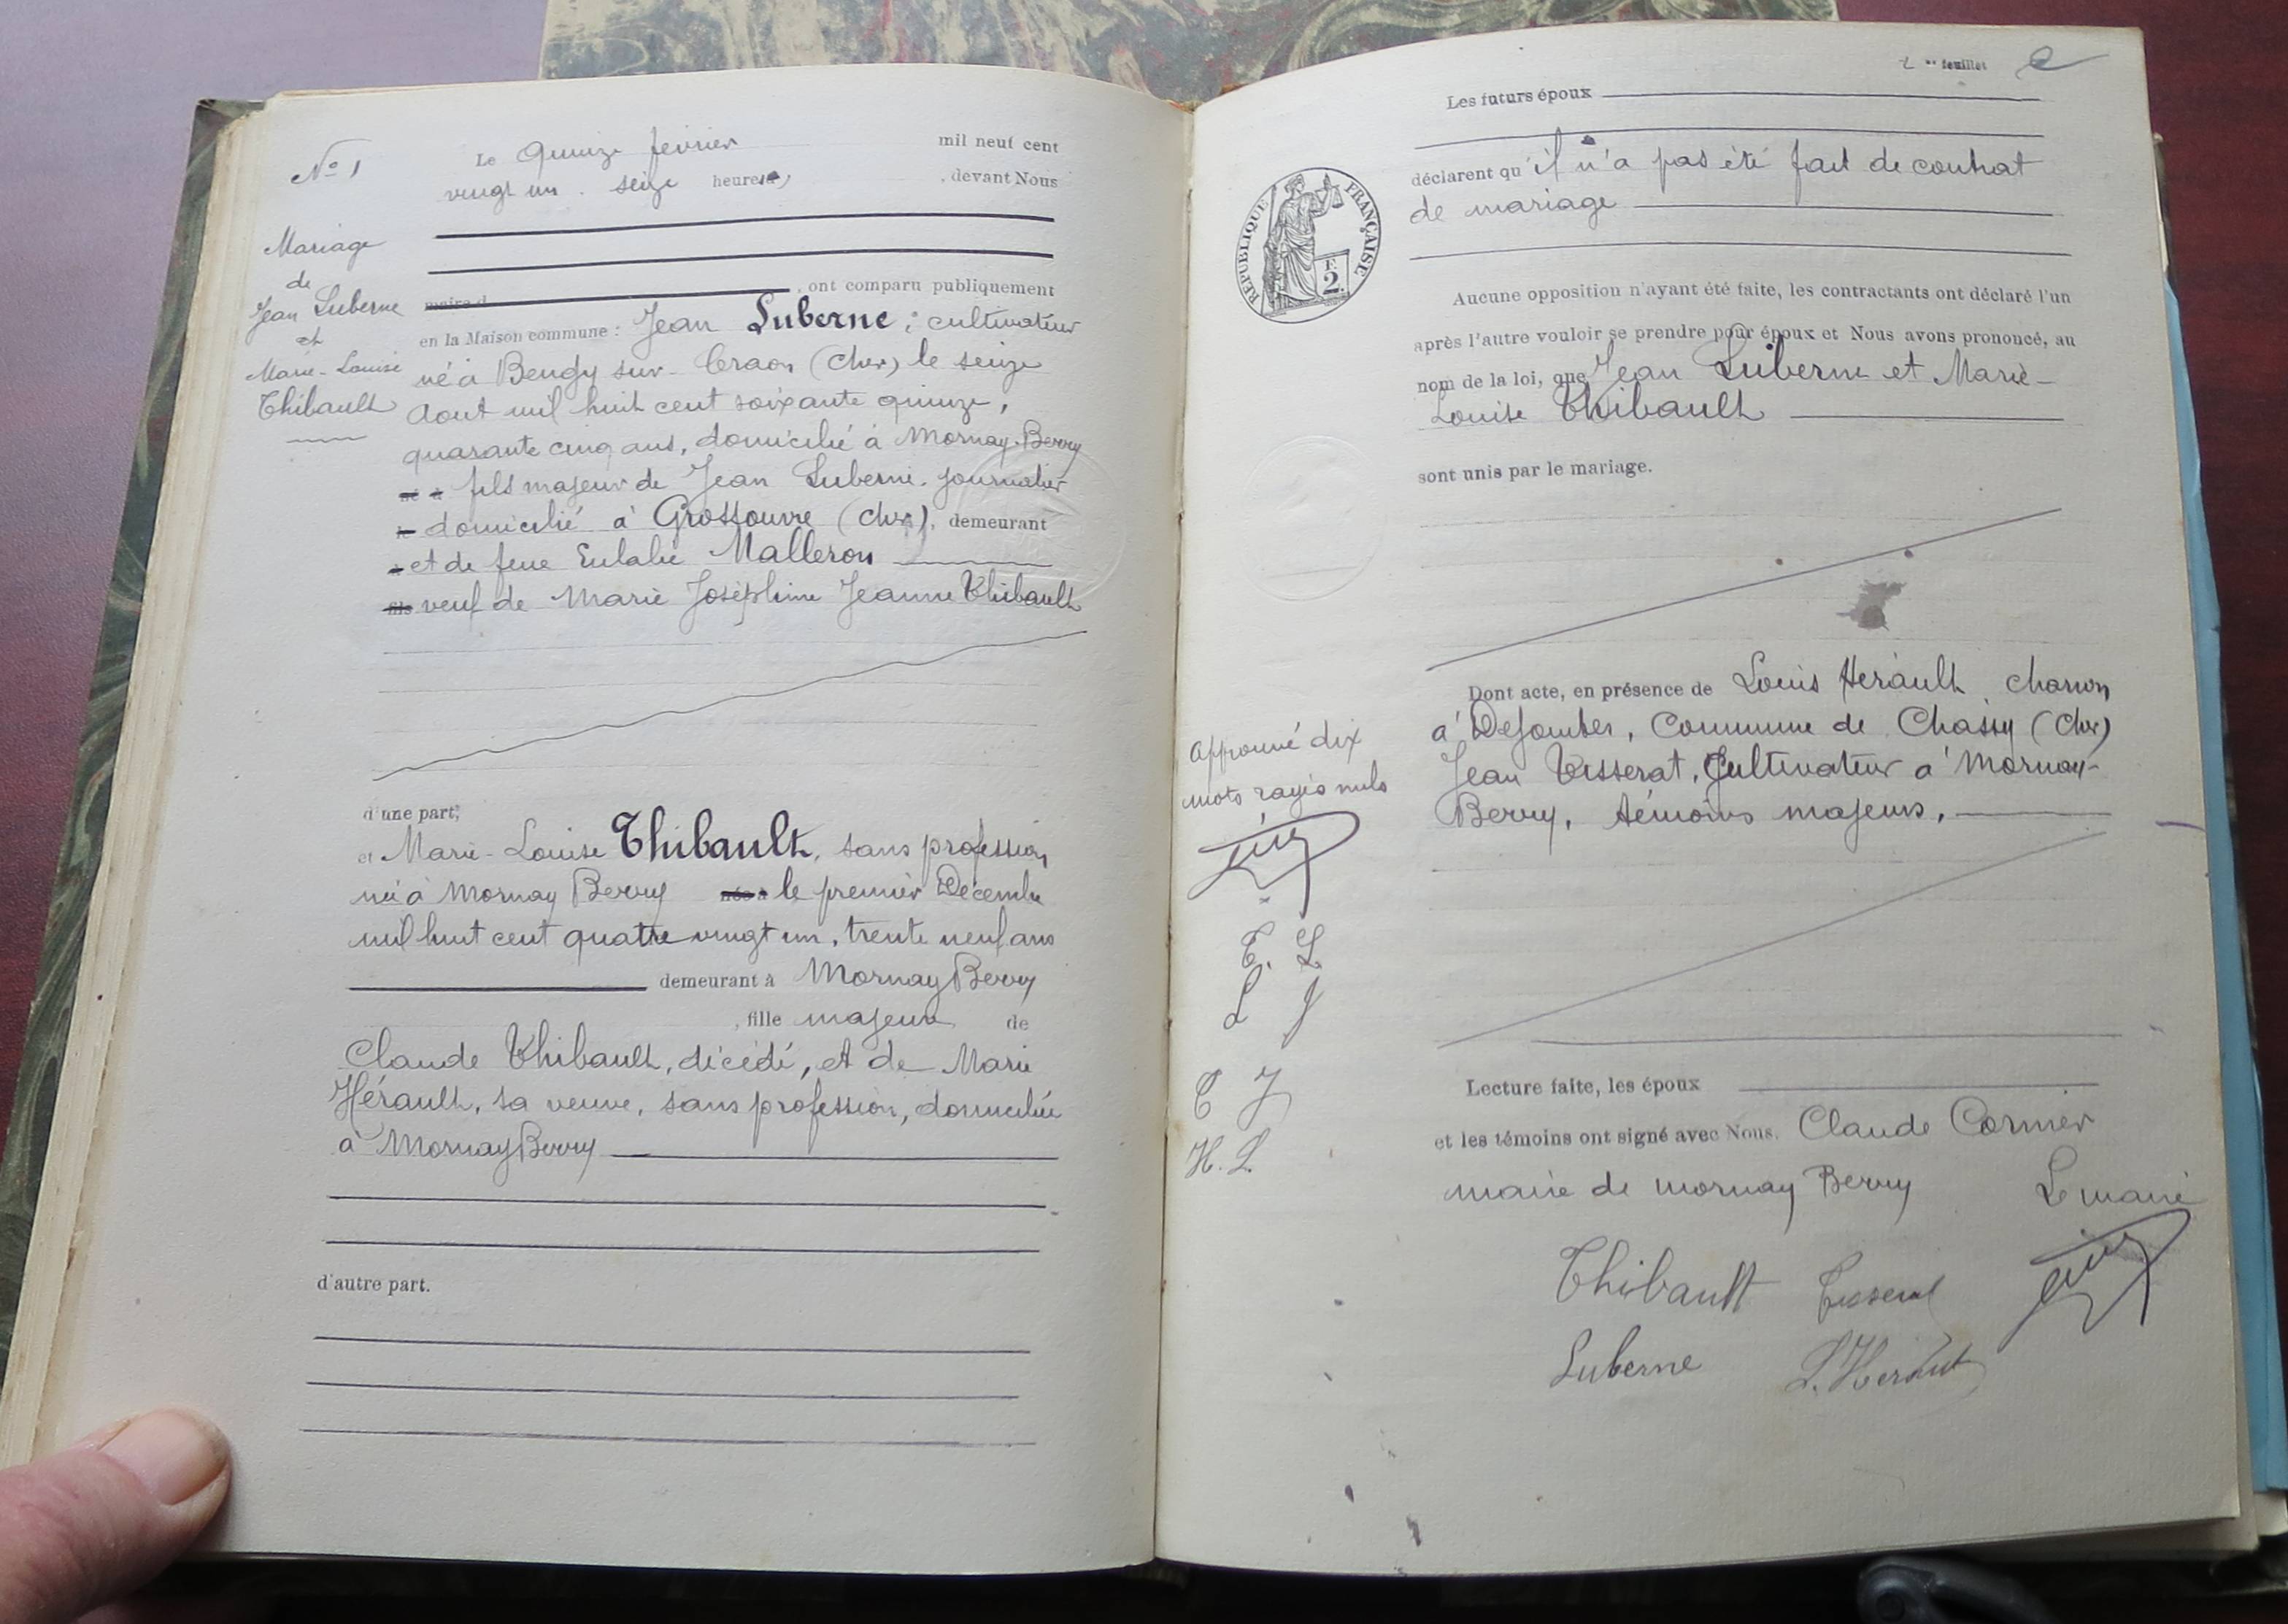 Nº 1
Mariage
de
Jean Luberne
et
Marie-Louise
Thibault
Le Quinze février mil neuf cent
vingt un. seize heures, devant Nous
maire d , ont comparu publiquement
en la Maison commune : Jean Luberne ; cultivateur
né à Bengy sur Craon (Cher) le seize
Aout mil huit cent soixante quinze,
quarante cinq ans, domicilié à Mornay-Berry
né à fils majeur de Jean Luberne. journalier
le domicilié à Grossouvre (Cher), demeurant
à et de feue Eulalie Malleron
fils veuf de Marie Joséphine Jeanne Thibault
d'une part;
et Marie-Louise Thibault, sans profession,
née à Mornay Berry née à le premier Décembre
mil huit cent quatre vingt un, trente neuf ans
demeurant à Mornay Berry
, fille majeure de
Claude Thibault, décédé, et de Marie
Hérault, sa veuve, sans profession, domiciliée
à Mornay Berry
d'autre part.
2 me feuillet
Les futurs époux
déclarent qu'il n'a pas été fait de contrat
de mariage
RÉPUBLIQUE FRANÇAISE
F.
2
Aucune opposition n'ayant été faite, les contractants ont déclaré l'un
après l'autre vouloir se prendre pour époux et Nous avons prononcé, au
nom de la loi, que Jean Luberne et Marie-
Louise Thibault
sont unis par le mariage.
Dont acte, en présence de Louis Hérault, charron
à Commune de Chassy (Cher)
Jean Tisserat, Cultivateur à Mornay-
Berry, témoins majeurs.
Approuvé dix
mots rayés nuls
T. L
L J
T J
H. L.
Lecture faite, les époux
et les témoins ont signé avec Nous. Claude Cornier
maire de Mornay Berry Le maire
Thibault Tisserat
Luberne L. Herault